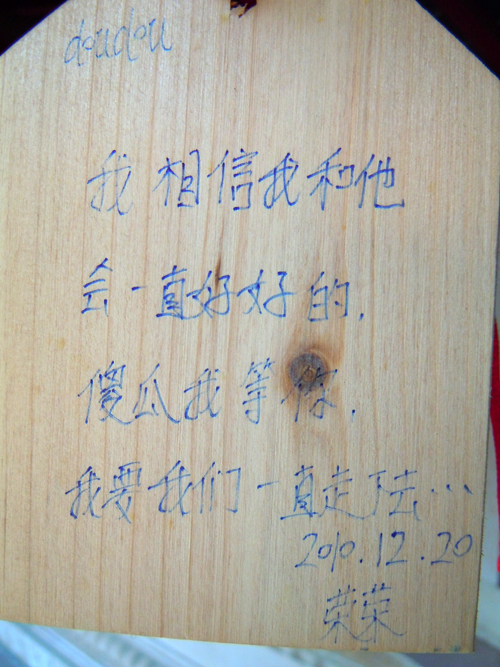 doudou
我相信我和他
会一直好好的.
傻瓜我等你.
我要我们一直走下去…
2010.12.20
荣荣